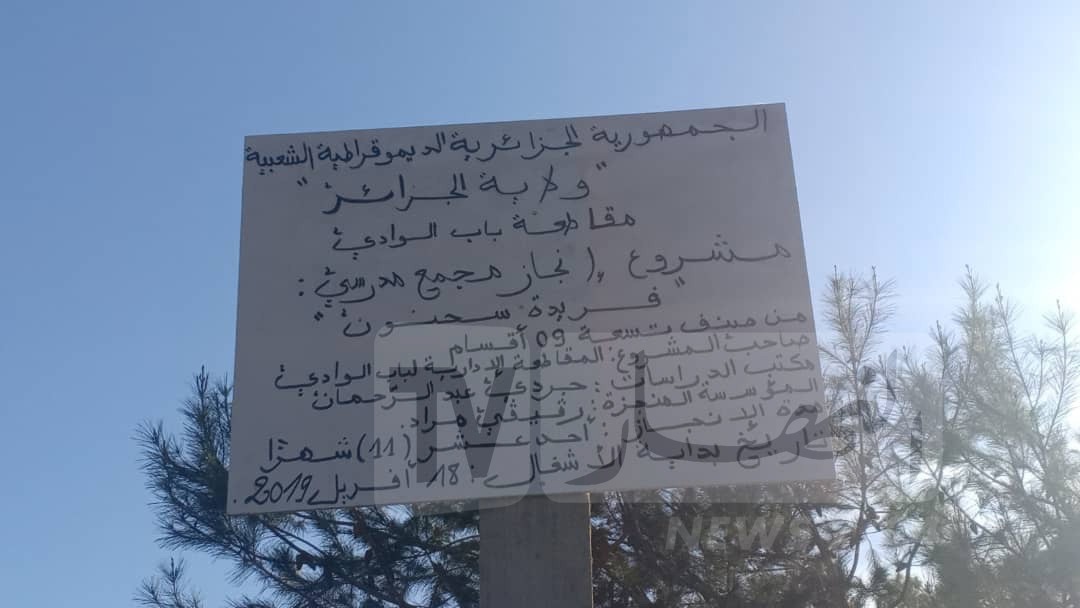 الجمهورية الجزائرية الديموقراطية الشعبية
"ولاية الجزائر"
مقاطعة باب الوادي
مشروع إنجاز مجمع مدرسي :
"فريدة سحنون"
من صنف تسعة 09 أقسام
صاحب المشروع: المقاطعة الإدارية لباب الوادي
مكتب الدراسات : جردي عبد الرحمان
المؤسسة المنجزة : رفيقي مراد.
مدة الانجاز : أحد عشر (11) شهرًا
تاريخ بداية الأشغال : 18 أفريل 2019.
TV
NEWS